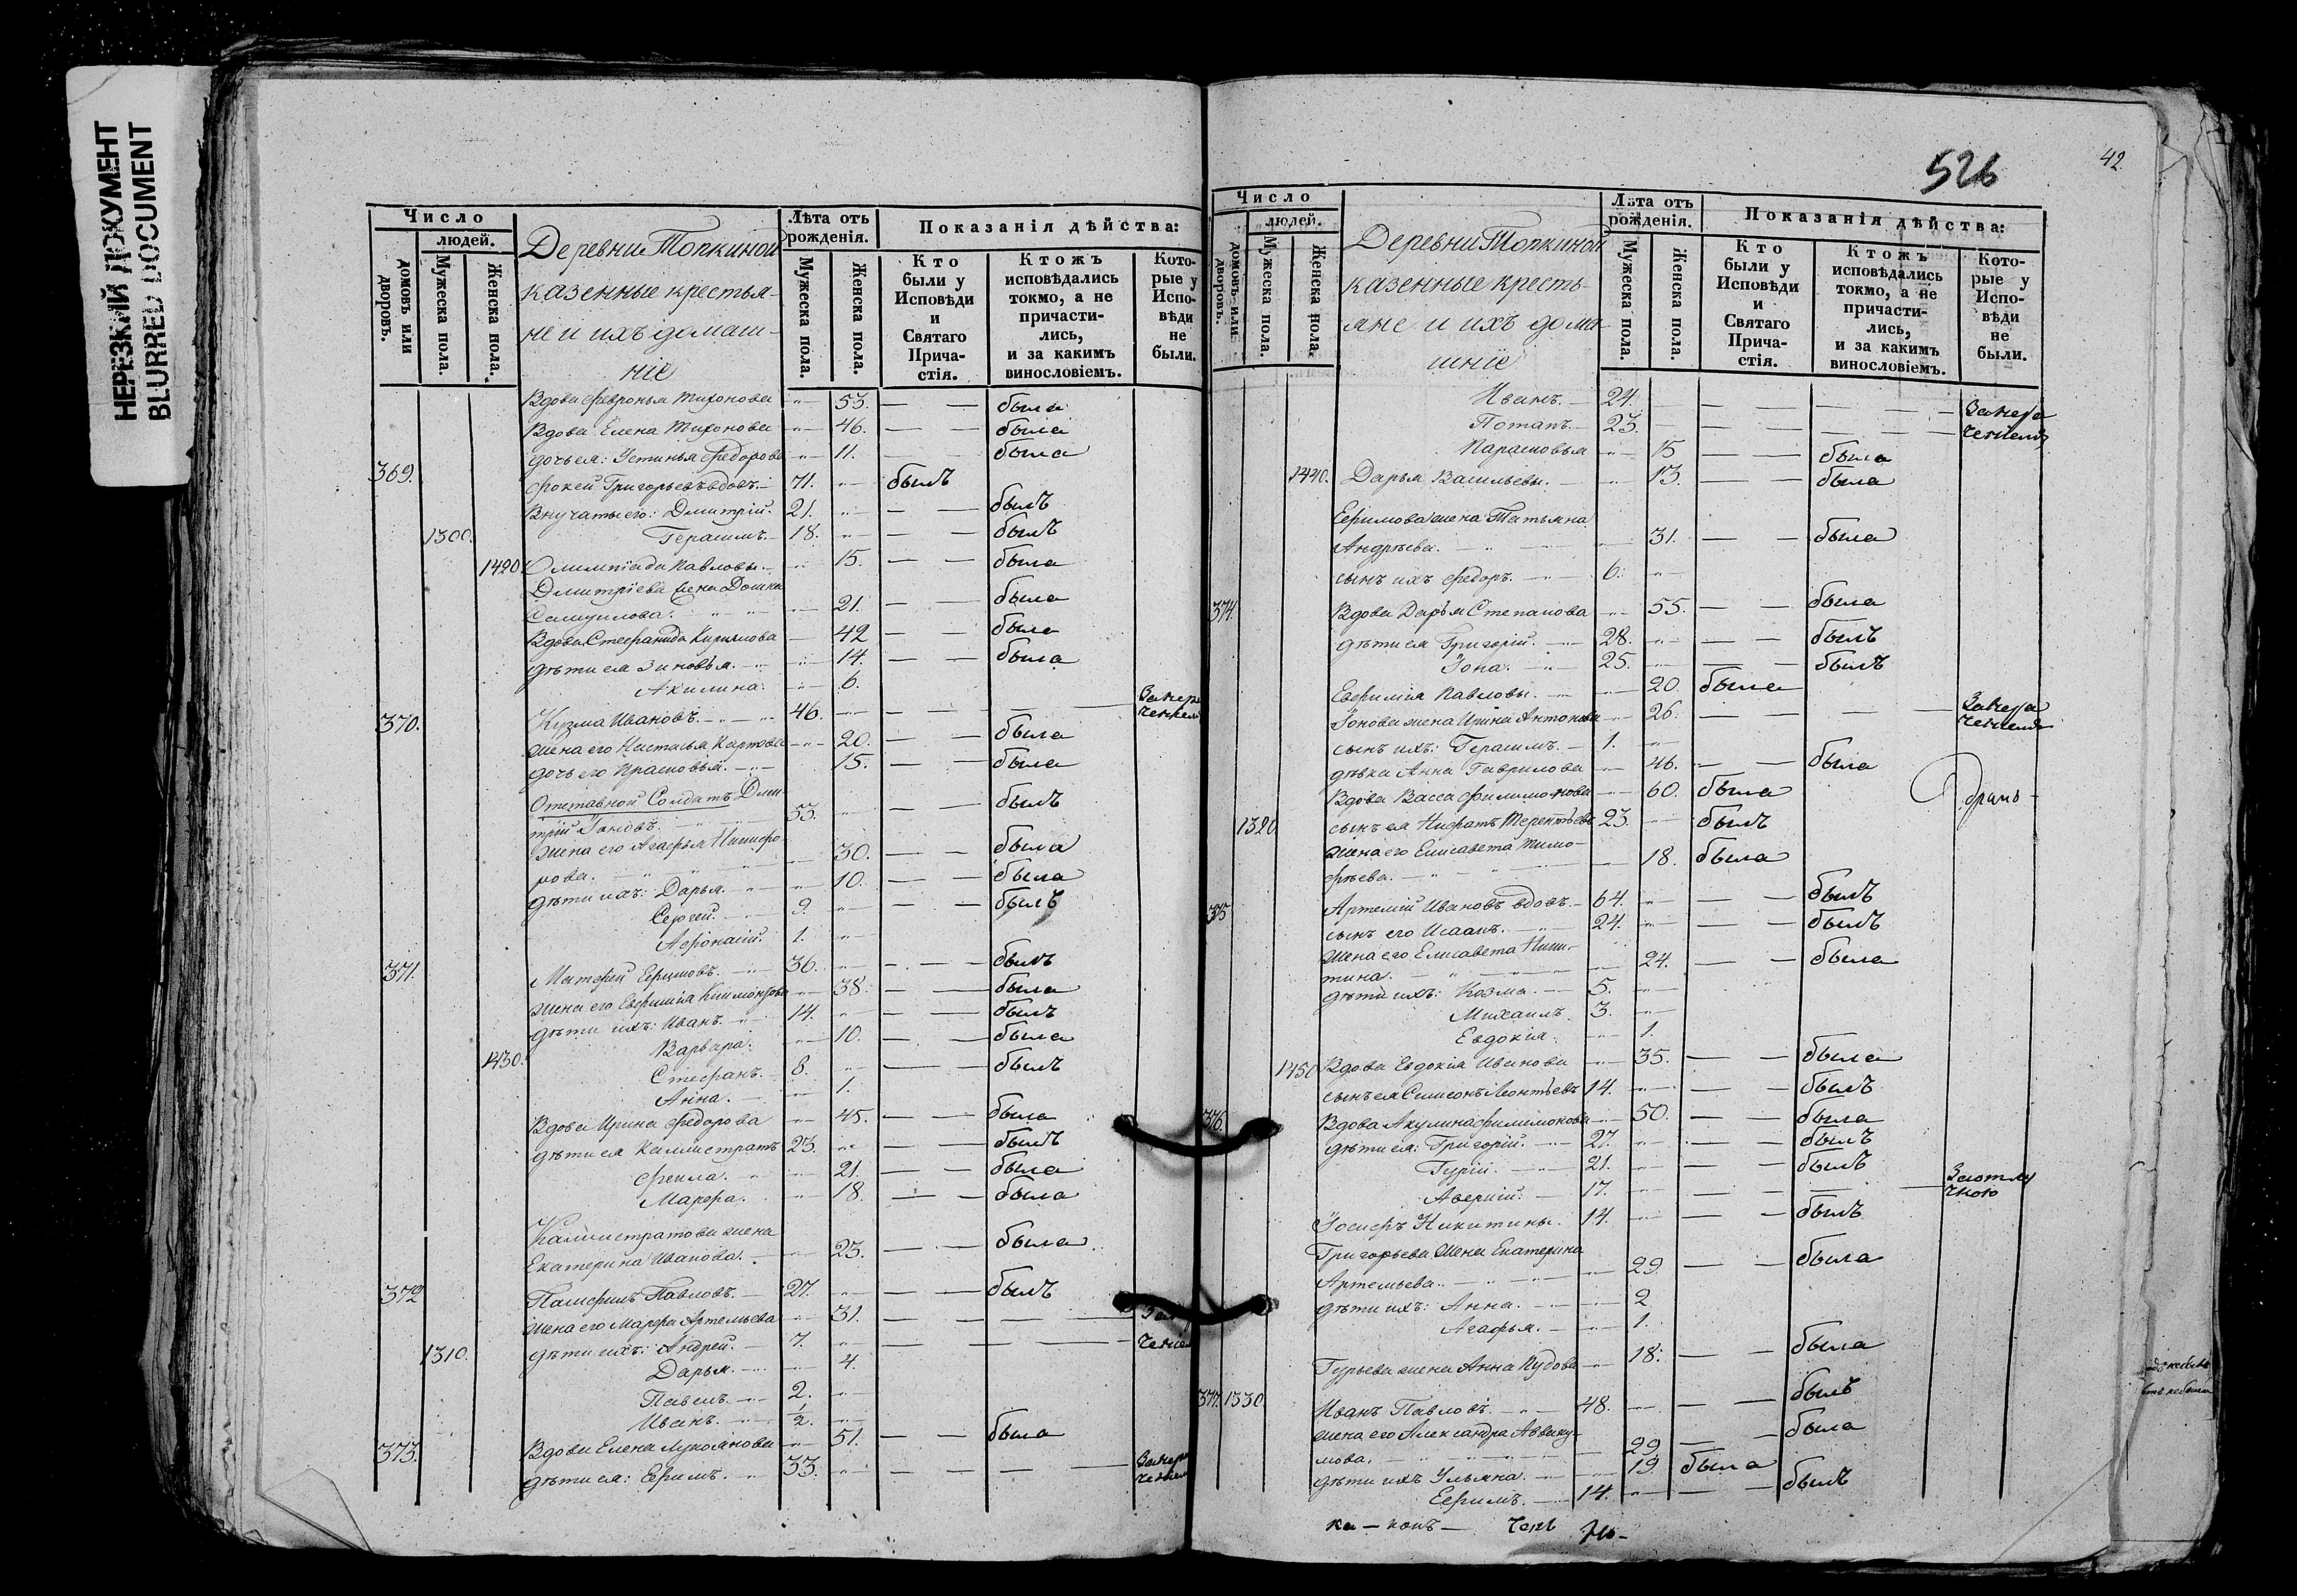 НЕРЕЗКИЙ ДОКУМЕНТ
BLURRED DOCUMENT
Число
людей.
домовъ или дворовъ.
Мужеска пола.
Женска пола.
Деревни Топкиной
казенные крестья-
не и ихъ домаш-
ніе
Лѣта отъ рожденія.
Мужеска пола.
Женска пола.
Показанія дѣйства:
Кто были у Исповѣди и Святаго Прича- стія.
Ктожъ исповѣдались токмо, а не причасти- лись, и за какимъ винословіемъ.
Кото- рые у Испо- вѣди не были.
Вдова Февронья Тихонова 53. была
Вдова Елена Тихонова 46. была
дочь ея: Устинья Федорова 11. была
369. Фокей Григорьевъ вдовъ. 71. былъ
Внучаты его: Дмитрій. 21. былъ
1300. Герасимъ. 18. былъ
1420. Олимпіада Павловы. 15. была
Дмитріева жена Домна
Самуилова. 21. была
Вдова Стефанида Кирилова 42 была
дѣти ея Зиновья. 14. была
Акилина. 6.
370. Кузма Ивановъ. 46.
жена его Настасья Карпова 20. была
дочь его Прасковья. 15. была
Отставной Солдатъ Дми-
трій Іоновъ. 53. былъ
жена его Агафья Никифо-
рова. 30. была
дѣти ихъ: Дарья. 10. была
Сергей. 9. былъ
Афонасій. 1.
371. Матфей Ефимовъ. 36. былъ
жена его Евфимія 38. была
дѣти ихъ: Иванъ. 14. былъ
Варвара. 10. была
1430. Стефанъ. 8. былъ
Анна. 1.
Вдова Ирина Федорова 45. была
дѣти ея Каллистратъ 23. былъ
Фекла. 21. была
Марфа. 18. была
Каллистратова жена
Екатерина Иванова. 23. была
372 Памфилъ Павловъ. 27. былъ
жена его Марфа Артемьева 31.
1310. дѣти ихъ: Андрей. 7.
Дарья. 4.
Павелъ. 2.
Иванъ. 1/2.
373. Вдова Елена Лукоянова 51. была
дѣти ея: Ефимъ. 33.
526
42
Число
людей.
домовъ или дворовъ.
Мужеска пола.
Женска пола.
Деревни Топкиной
казенные кресть-
яне и ихъ дома-
шніе
Лѣта отъ рожденія.
Мужеска пола.
Женска пола.
Показанія дѣйства:
Кто были у Исповѣди и Святаго Прича- стія.
Ктожъ исповѣдались токмо, а не причасти- лись, и за какимъ винословіемъ.
Кото- рые у Испо- вѣди не были.
Иванъ. 24.
Потапъ. 23.
Парасковья 15 была
1440. Дарья Васильевы. 13. была
Ефимова жена Татьяна
Андрѣева. 31. была
сынъ ихъ Федоръ. 6.
374. Вдова Дарья Степанова 55. была
дѣти ея Григорій. 28. былъ
Іона. 25. былъ
Евфимія Павловы. 20. была
Іонова жена Ирина Антонова 26.
сынъ ихъ: Герасимъ. 1.
дѣвка Анна Гаврилова 46. была
Вдова Васса Филимонова 60. была
1320 сынъ ея Нифатъ Терентьевъ 23. былъ
жена его Елисавета Тимо-
фѣева. 18. была
375 Артемій Ивановъ вдовъ. 64. былъ
сынъ его Исаакъ. 24. былъ
жена его Елисавета Ники-
тина. 24. была
дѣти ихъ: Козма. 5.
Михаилъ. 3.
Евдокія. 1.
1450 Вдова Евдокія Иванова 35. была
сынъ ея Симеонъ Леонтьевъ 14. былъ
376. Вдова Акулина Филимонова 50. была
дѣти ея: Григорій. 27. былъ
Гурій. 21. былъ
Аверкій. 17.
Іосифъ Никитины. 14. былъ
Григорьева жена Екатерина
Артемьева. 29. была
дѣти ихъ: Анна. 2
Агафья. 1.
Гурьева жена Анна Кудова 18. была
377. 1330. Иванъ Павловъ. 48. былъ
жена его Александра Авваку-
мова. 29. была
дѣти ихъ Ульяна. 19. была
Ефимъ. 14. былъ